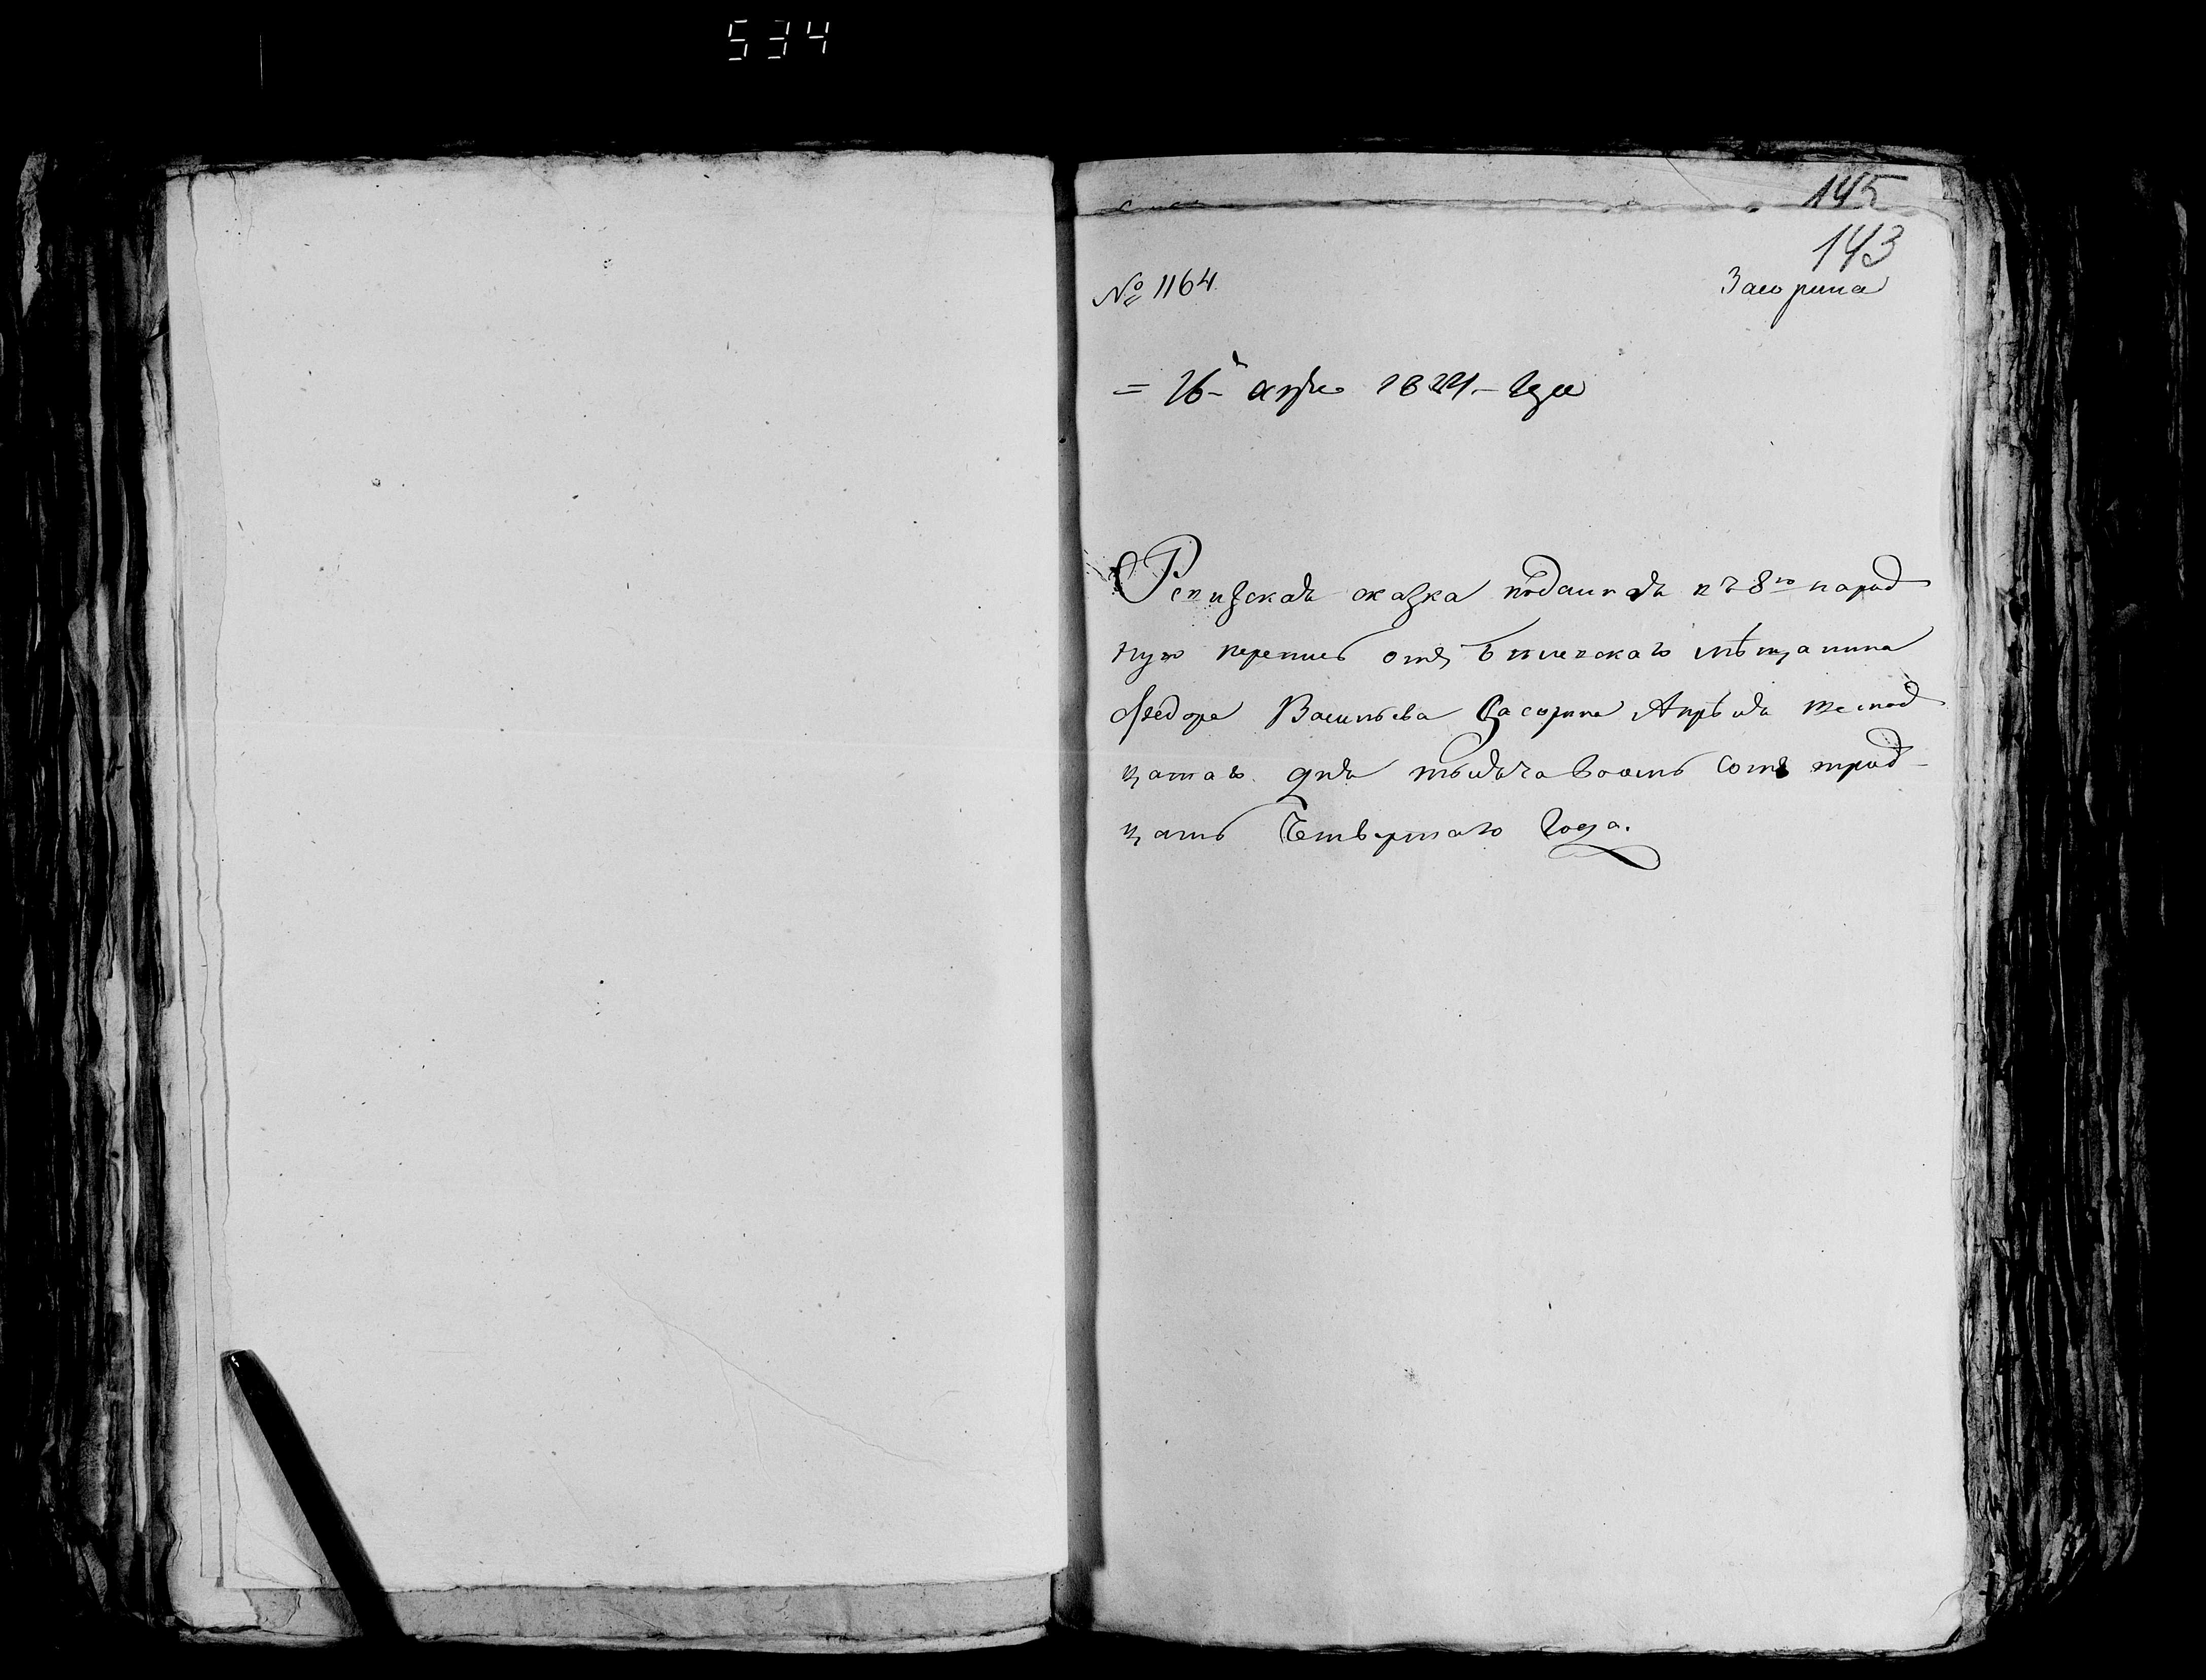 534
145
143
№ 1164
Засорина
= 16 апре 1834 года
Ревизская сказка поданная к 8ю народ
ную перепись отъ Белевскаго мѣщанина
Федора Васильева Засорина Апрѣля шеснад
цатаго дня тысяча восемь сотъ трид-
цать Четвертаго Года.